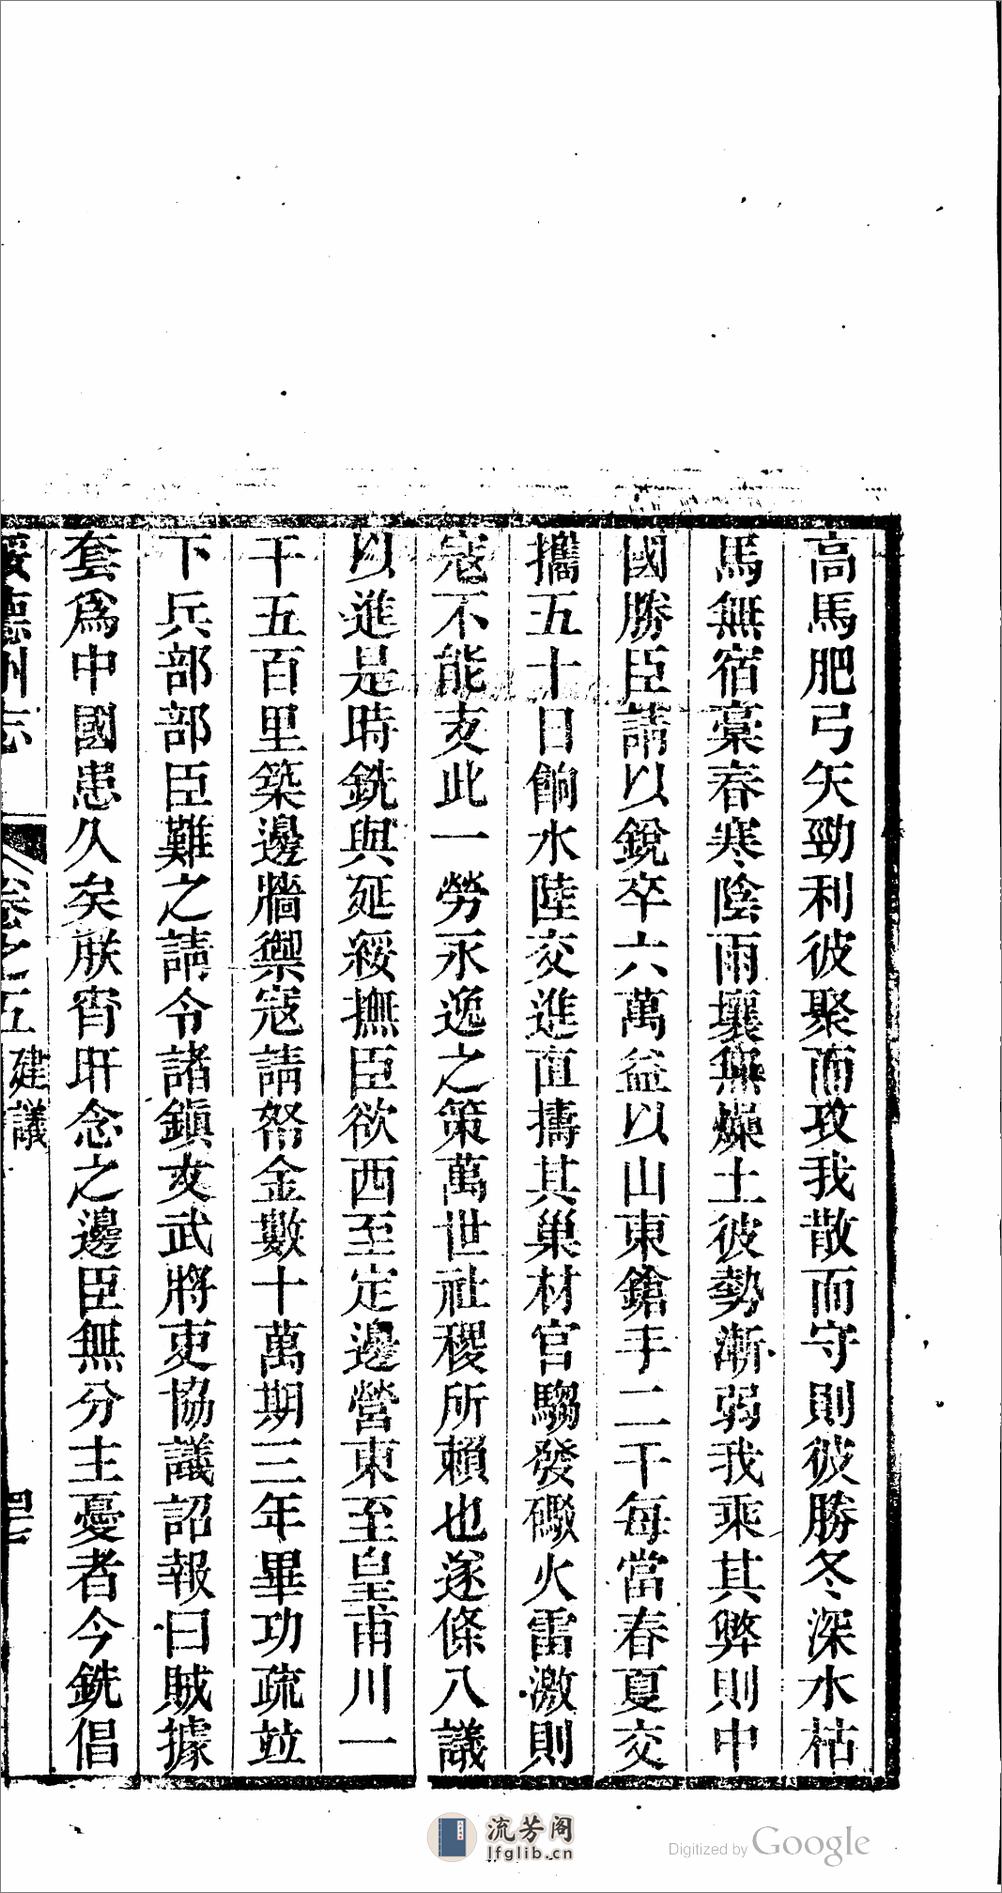 高馬肥弓矢勁利彼聚而攻我散而守則彼勝冬深水枯
馬無宿藁春寒陰雨壤無燥土彼勢漸弱我乘其弊則中
國勝臣請以銳卒六萬益以山東鎗手二千每當春夏交
攜五十日餉水陸交進直擣其巢材官騶發礮火雷激則
寇不能支此一勞永逸之策萬世社稷所賴也遂條八議
以進是時銑與延綏撫臣欲西至定邊營東至皇甫川一
千五百里築邊牆禦寇請帑金數十萬期三年畢功疏竝
下兵部部臣難之請令諸鎮文武將吏協議詔報曰賊據
套爲中國患久矣朕宵旰念之邊臣無分主憂者今銑倡
綏德州志
卷之五
建議
四七
流芳阁
lfglib.cn
Digitized by Google